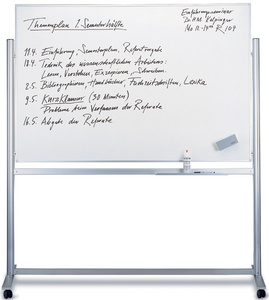 Themenplan 1. Semesterhälfte
Einführungsseminar
Dr. P.M. Edfinger
Mo 12-14°° R 109
11.4. Einführung, Semesterplan, Referatsvergabe
18.4. Technik des wissenschaftlichen Arbeitens:
Lesen, Verstehen, Exzerpieren, Schreiben.
2.5. Bibliographieren, Handbücher, Fachzeitschriften, Lexika
9.5. Kurzklausur (30 Minuten)
Probleme beim Verfassen der Referate
16.5. Abgabe der Referate